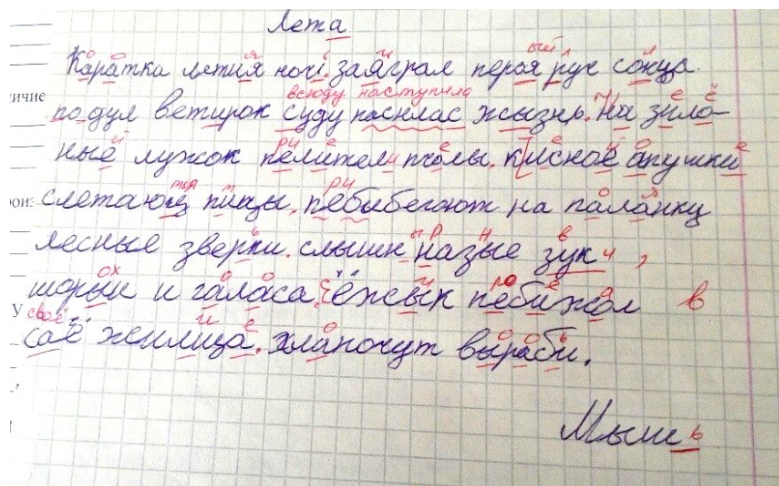 Лета
Каратка летия ночi. заяграл перая руч сонца.
по дул ветирок суду наснлас жызнь. На зило-
ные лужок пелители пчолы. к лисное апушки
слетаюца пицы. пебибегают на паланку
лесные зверки. слышн назые зук,
шоры и галаса. ёжык пебижал в
саё жилища. хлапочут вырабы.
Мыш